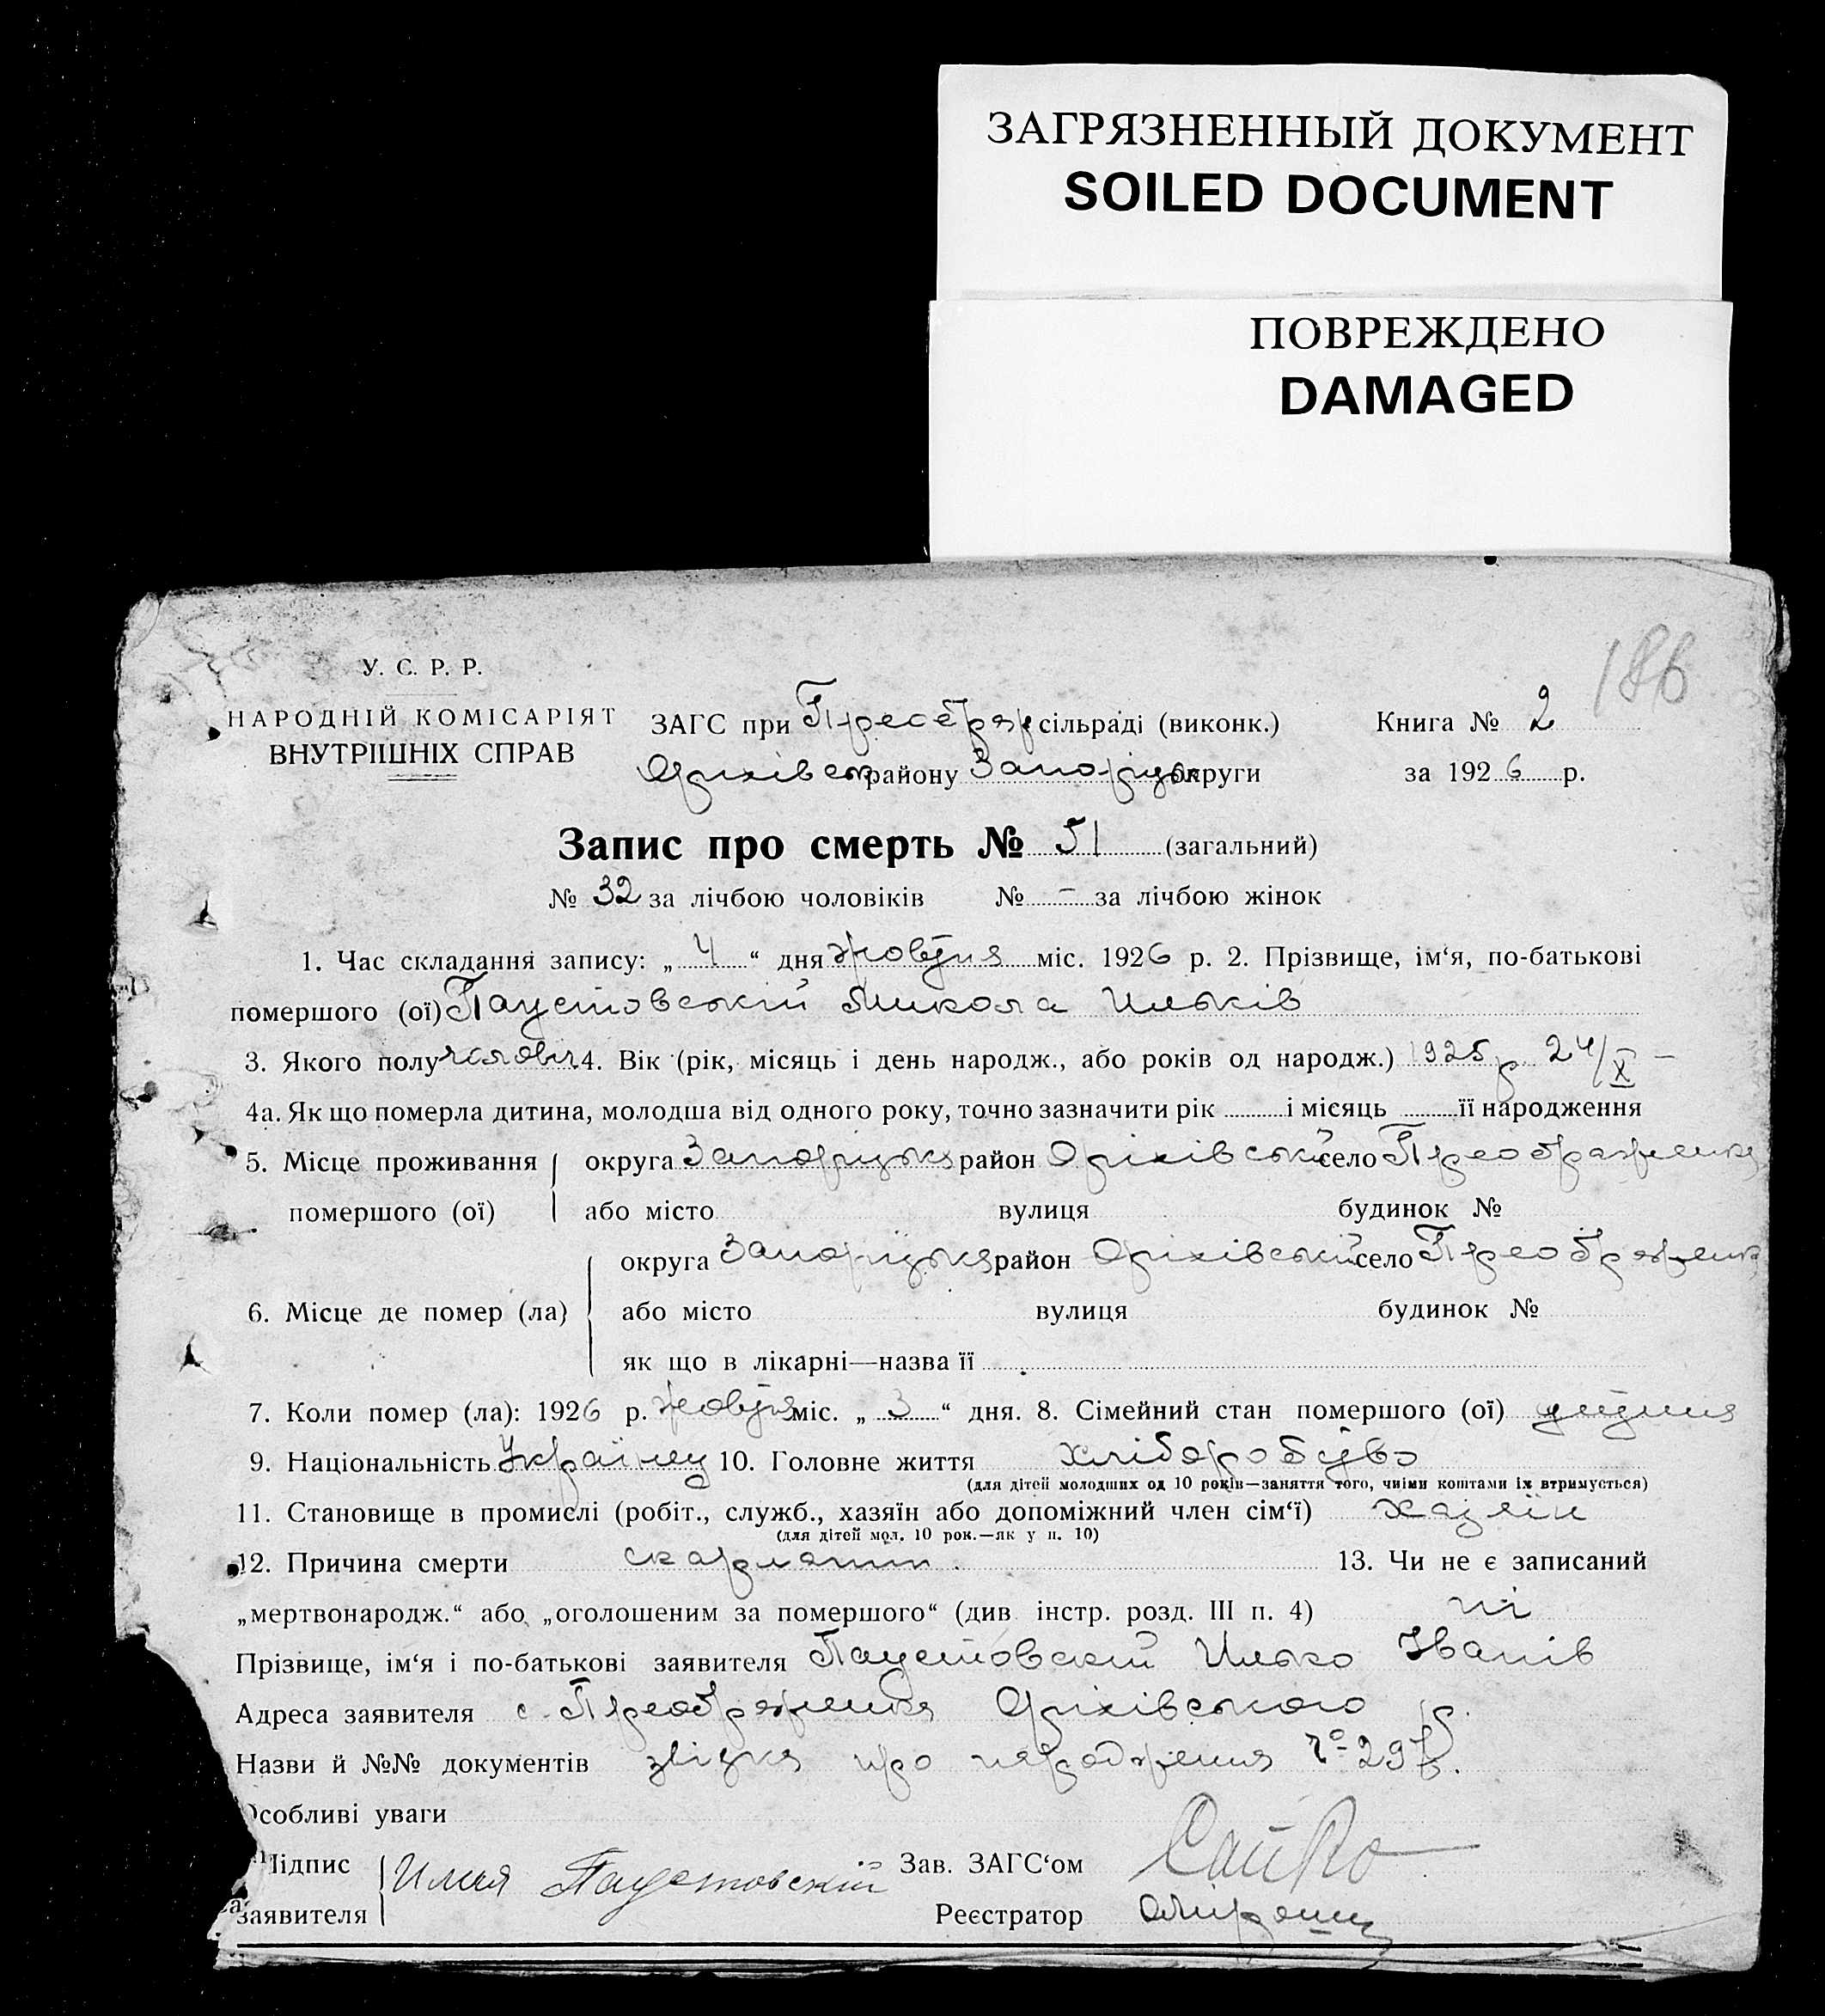 ЗАГРЯЗНЕННЫЙ ДОКУМЕНТ
SOILED DOCUMENT
ПОВРЕЖДЕНО
DAMAGED
186
У. С. Р. Р.
НАРОДНІЙ КОМІСАРІЯТ
ВНУТРІШНІХ СПРАВ
ЗАГС при Преображ сільраді (виконк.) Книга № 2
Оріхівськ району Запоріцьк округи за 1926 р.
Запис про смерть № 51 (загальний)
№ 32 за лічбою чоловіків № – за лічбою жінок
1. Час складання запису: „ 4 “ дня жовтня міс. 1926 р. 2. Прізвище, ім‘я, по-батькові
помершого (ої) Паустовський Микола Ильків
3. Якого полу чолов 4. Вік (рік, місяць і день народж., або років од народж.) 1925 р 24/X –
4а. Як що померла дитина, молодша від одного року, точно зазначити рік і місяць її народження
5. Місце проживання округа Запоріцька район Оріхівський село Преображенка
помершого (ої) або місто вулиця будинок №
округа Запоріцька район Оріхівський село Преображенк
6. Місце де помер (ла) або місто вулиця будинок №
як що в лікарні—назва її
7. Коли помер (ла): 1926 р. жовтня міс. „ 3 “ дня. 8. Сімейний стан помершого (ої) дитина
9. Національність Українец 10. Головне життя хліборобство
(для дітей молодших од 10 років—заняття того, чиїми коштами їх втримується)
11. Становище в промислі (робіт., служб., хазяїн або допоміжний член сім‘ї) хазяїн
(для дітей мол. 10 рок.—як у п. 10)
12. Причина смерти скарлятин. 13. Чи не є записаний
„мертвонародж.“ або „оголошеним за помершого“ (див інстр. розд. III п. 4) ні
Прізвище, ім‘я і по-батькові заявителя Паустовский Илько Іванів
Адреса заявителя с. Преображенка Оріхівського р.
Назви й №№ документів звістка про народження № 297.
Особливі уваги
Підпис Илия Паустовский Зав. ЗАГС‘ом Сайко
заявителя Реєстратор